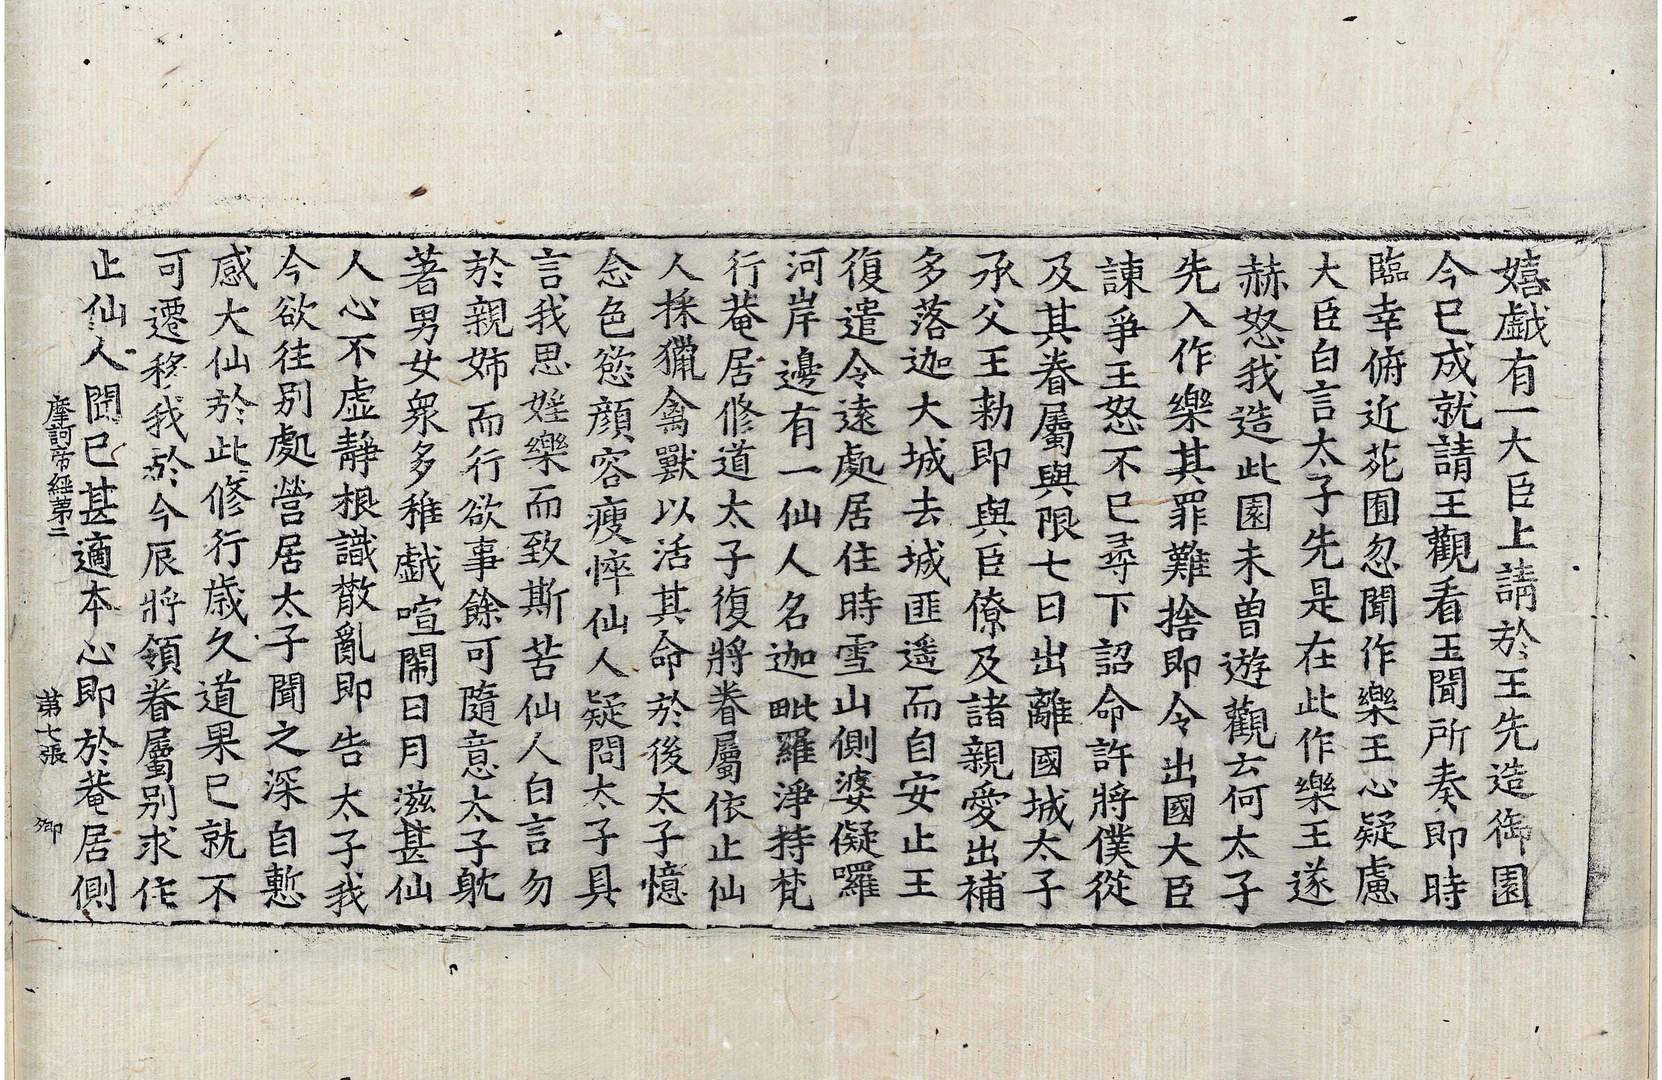 嬉戱有一大臣上請於王先造御園
今已成就請王觀看王聞所奏即時
臨幸俯近苑囿忽聞作樂王心疑慮
大臣白言太子先是在此作樂王遂
赫怒我造此園未曽遊觀云何太子
先入作樂其罪難捨即令出國大臣
諫爭王怒不已尋下詔命許將僕從
及其眷屬與限七日出離國城太子
承父王勑即與臣僚及諸親愛出補
多落迦大城去城匪遥而自安止王
復遣令遠處居住時雪山側婆儗囉
河岸邊有一仙人名迦毗羅淨持梵
行菴居修道太子復將眷屬依止仙
人採獵禽獸以活其命於後太子憶
念色慾顔容瘦悴仙人疑問太子具
言我思婬樂而致斯苦仙人白言勿
於親姊而行欲事餘可隨意太子躭
著男女衆多稚戱喧閙日月滋甚仙
人心不虚靜根識散亂即告太子我
今欲徃別處營居太子聞之深自慙
感大仙於此修行歳久道果已就不
可遷移我於今辰將領眷屬别求作
止仙人聞已甚適本心即於菴居側
摩訶帝經苐二 苐七張 御